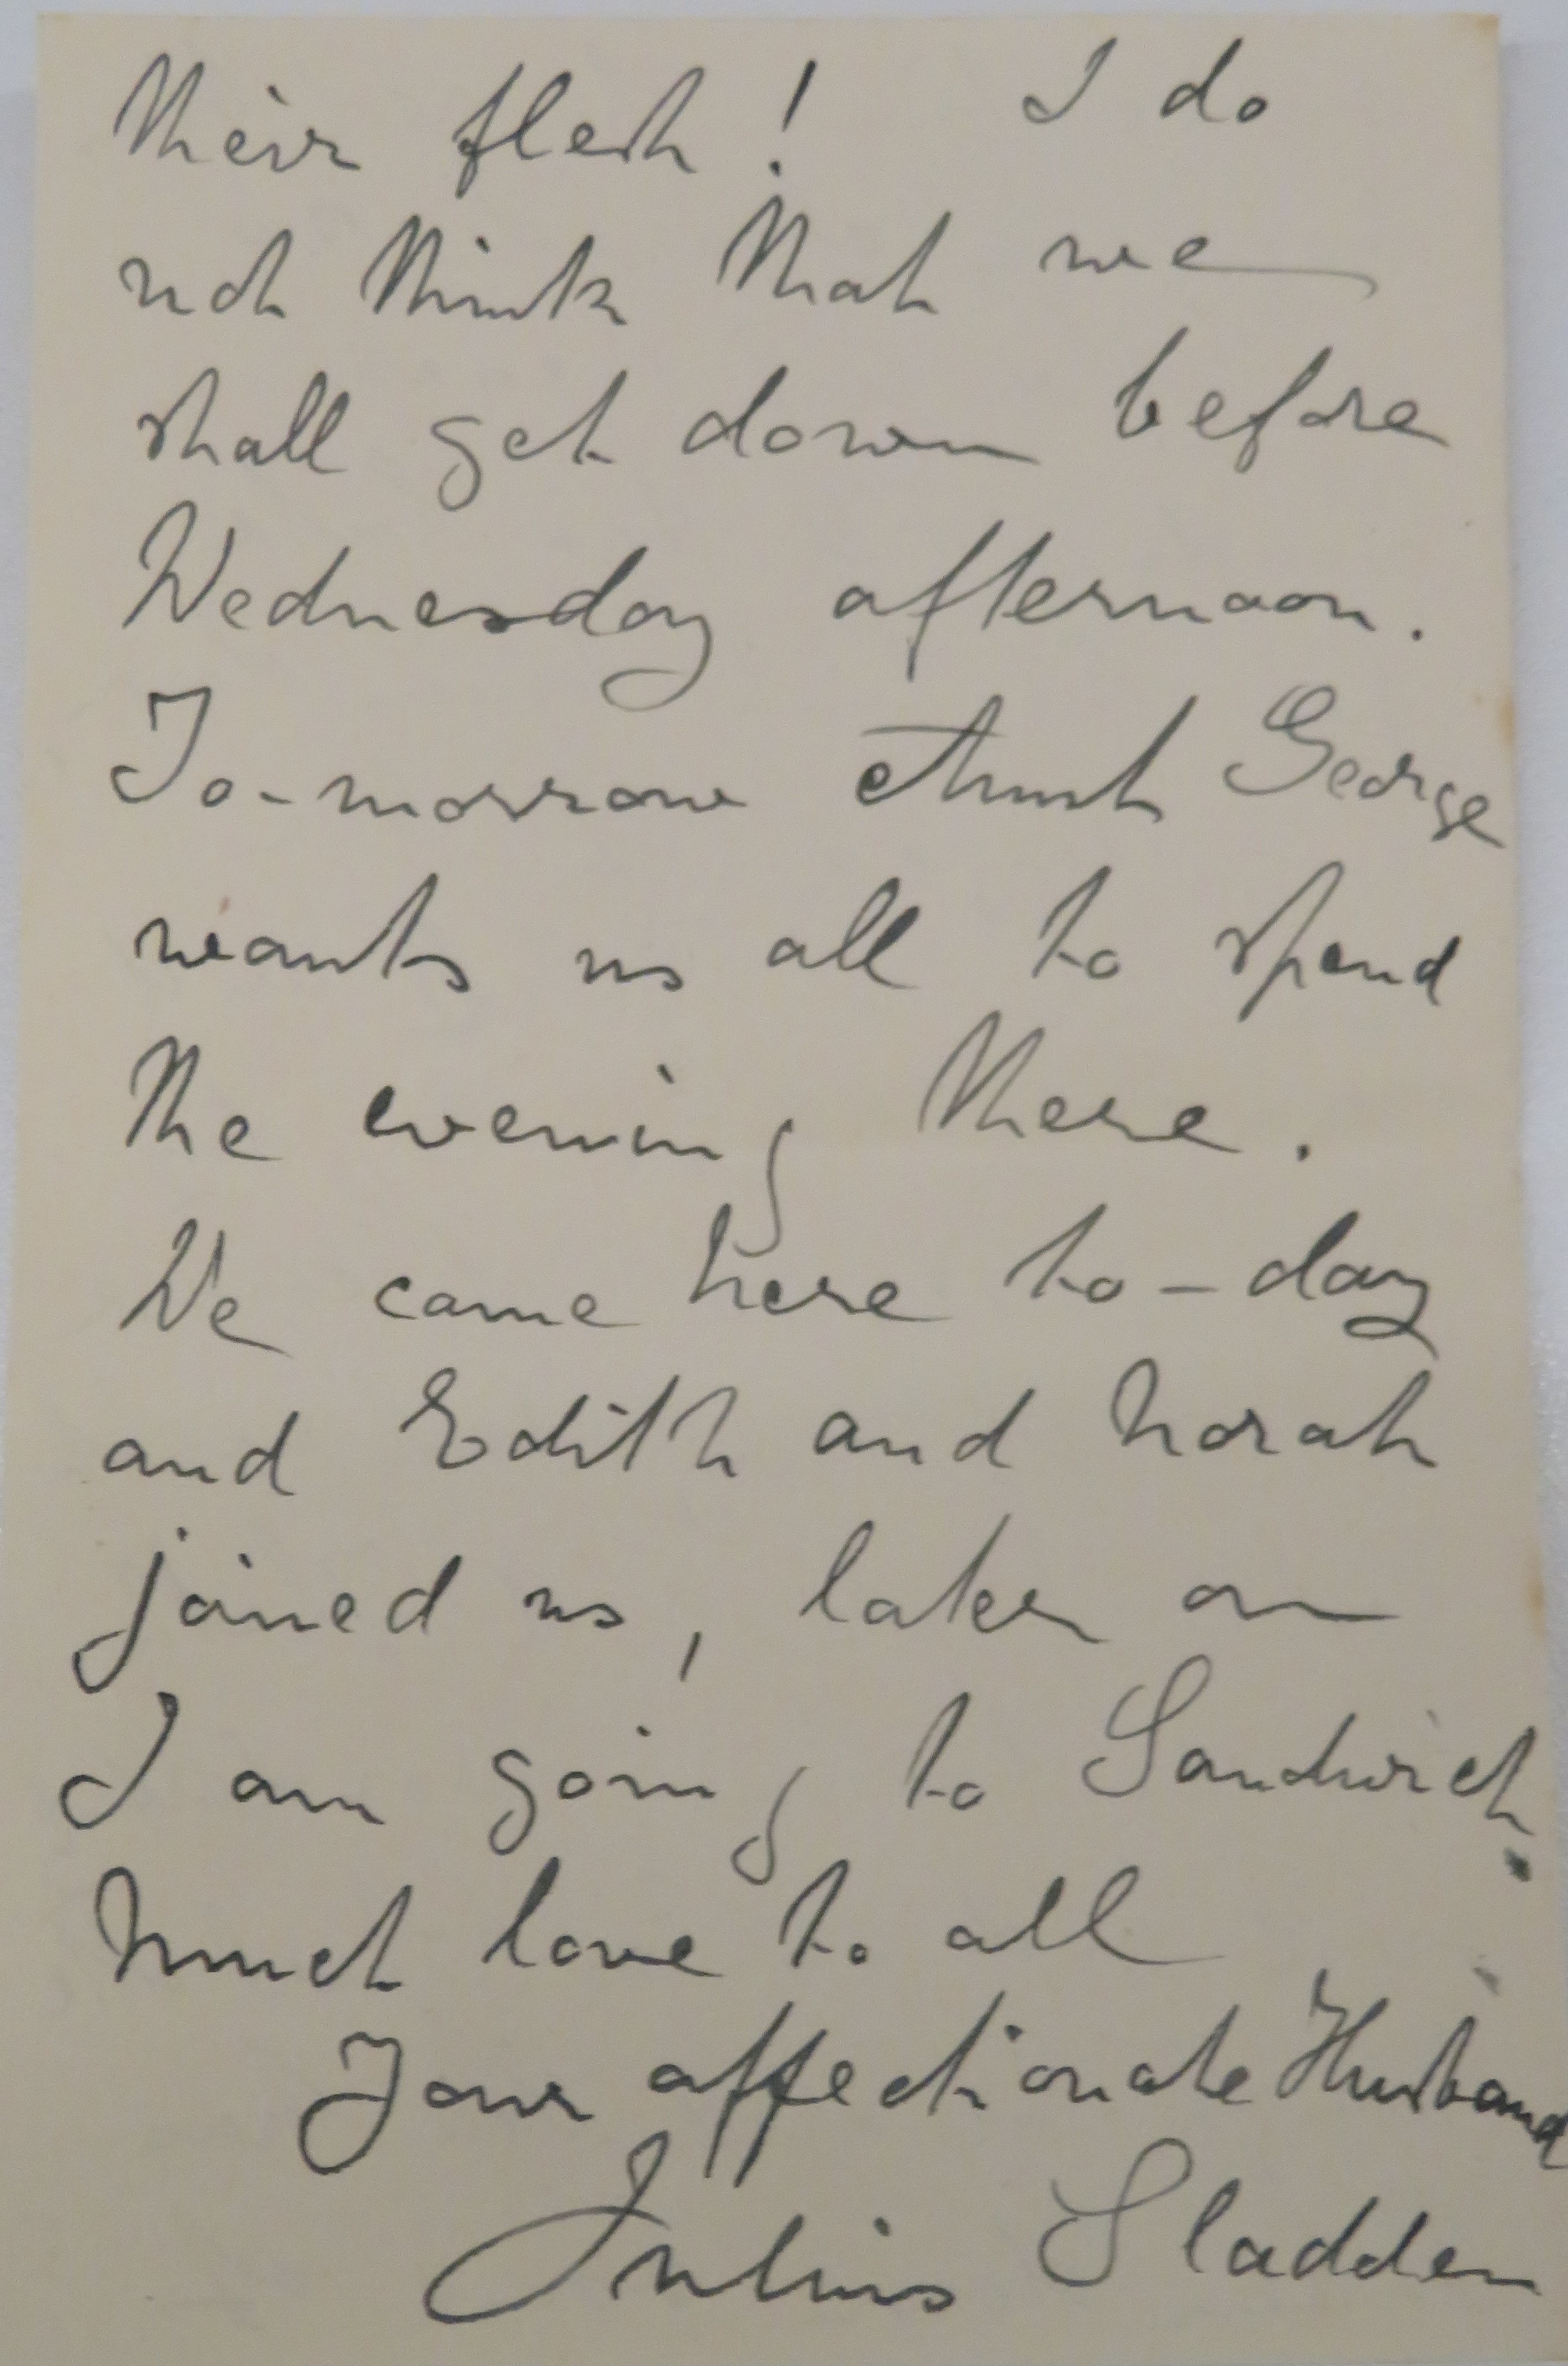 their flesh! I do
not think that we
shall get down before
Wednesday afternoon.
To-morrow Aunt George
wants us all to spend
the evening there.
We came here to-day
and Edith and Norah
joined us, later on
I am going to Sandwich.
Much love to all
Your affectionate Husband
Julius Sladden